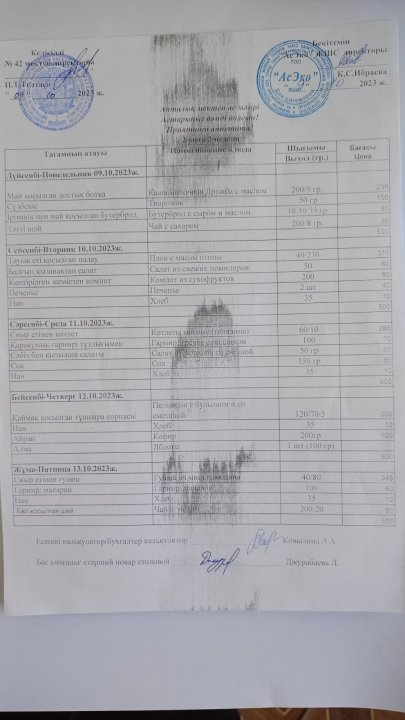 Келісілді
Бекітемін
№ 42 мектеп директоры
"АсЭко" ЖШС директоры
К.С.Ибраева
2023 ж.
2023 ж.
ТОО
"АсЭко"
ЖШС
Апталық мектеп ас мәзірі
Астарыңыз дәмді болсын!
Приятного аппетита!
Тағамның атауы
Наименование блюда
Шығымы Выход (гр.)
Бағасы Цена
Дүйсенбі-Понедельник 09.10.2023ж.
Май қосылған достық ботқа Каша молочная Дружба с маслом 200/5 гр.
Сүзбеше Творожок 50 гр
Ірімшік пен май қосылған бутерброд Бутерброд с сыром и маслом 10/10/35 гр
Тәтті шәй Чай с сахаром 200/8 гр.
500
Сейсенбі-Вторник 10.10.2023ж.
Тауық еті қосылған палау Плов с мясом птицы 40/230 310
Балғын қызанақтан салат Салат из свежих помидоров 50 80
Кептірілген жемістен компот Компот из сухофруктов 200 60
Печенье Печенье 2 шт 40
Нан Хлеб 35 10
500
Сәрсенбі-Среда 11.10.2023ж.
Сиыр етінен котлет Котлеты мясные (говядина) 60/10 280
Қарақұмық гарнирі тұздығымен Гарнир гречка с подливом 100 70
Сәбіз бен қызылша салаты Салат 50 гр
Сок Сок 150 гр
Нан Хлеб 35 10
500
Бейсенбі-Четверг 12.10.2023ж.
Қаймақ қосылған тұшпара сорпасы Пельмени с бульоном и со сметаной 120/70/5 305
Нан Хлеб 35 10
Айран Кефир 200гр 100
Алма Яблоко 1 шт (100 гр)
500
Жұма-Пятница 13.10.2023ж.
Сиыр етінен гуляш Гуляш из мяса говядины 40/80 345
Гарнир: макарон Гарнир: макароны 100 60
Нан Хлеб 35 10
Бал қосылған шай Чай с медом 200/20 85
500
Есепші калькулятор/бухгалтер калькулятор
Бас аспазшы/ старший повар столовой Джурабаева Д.